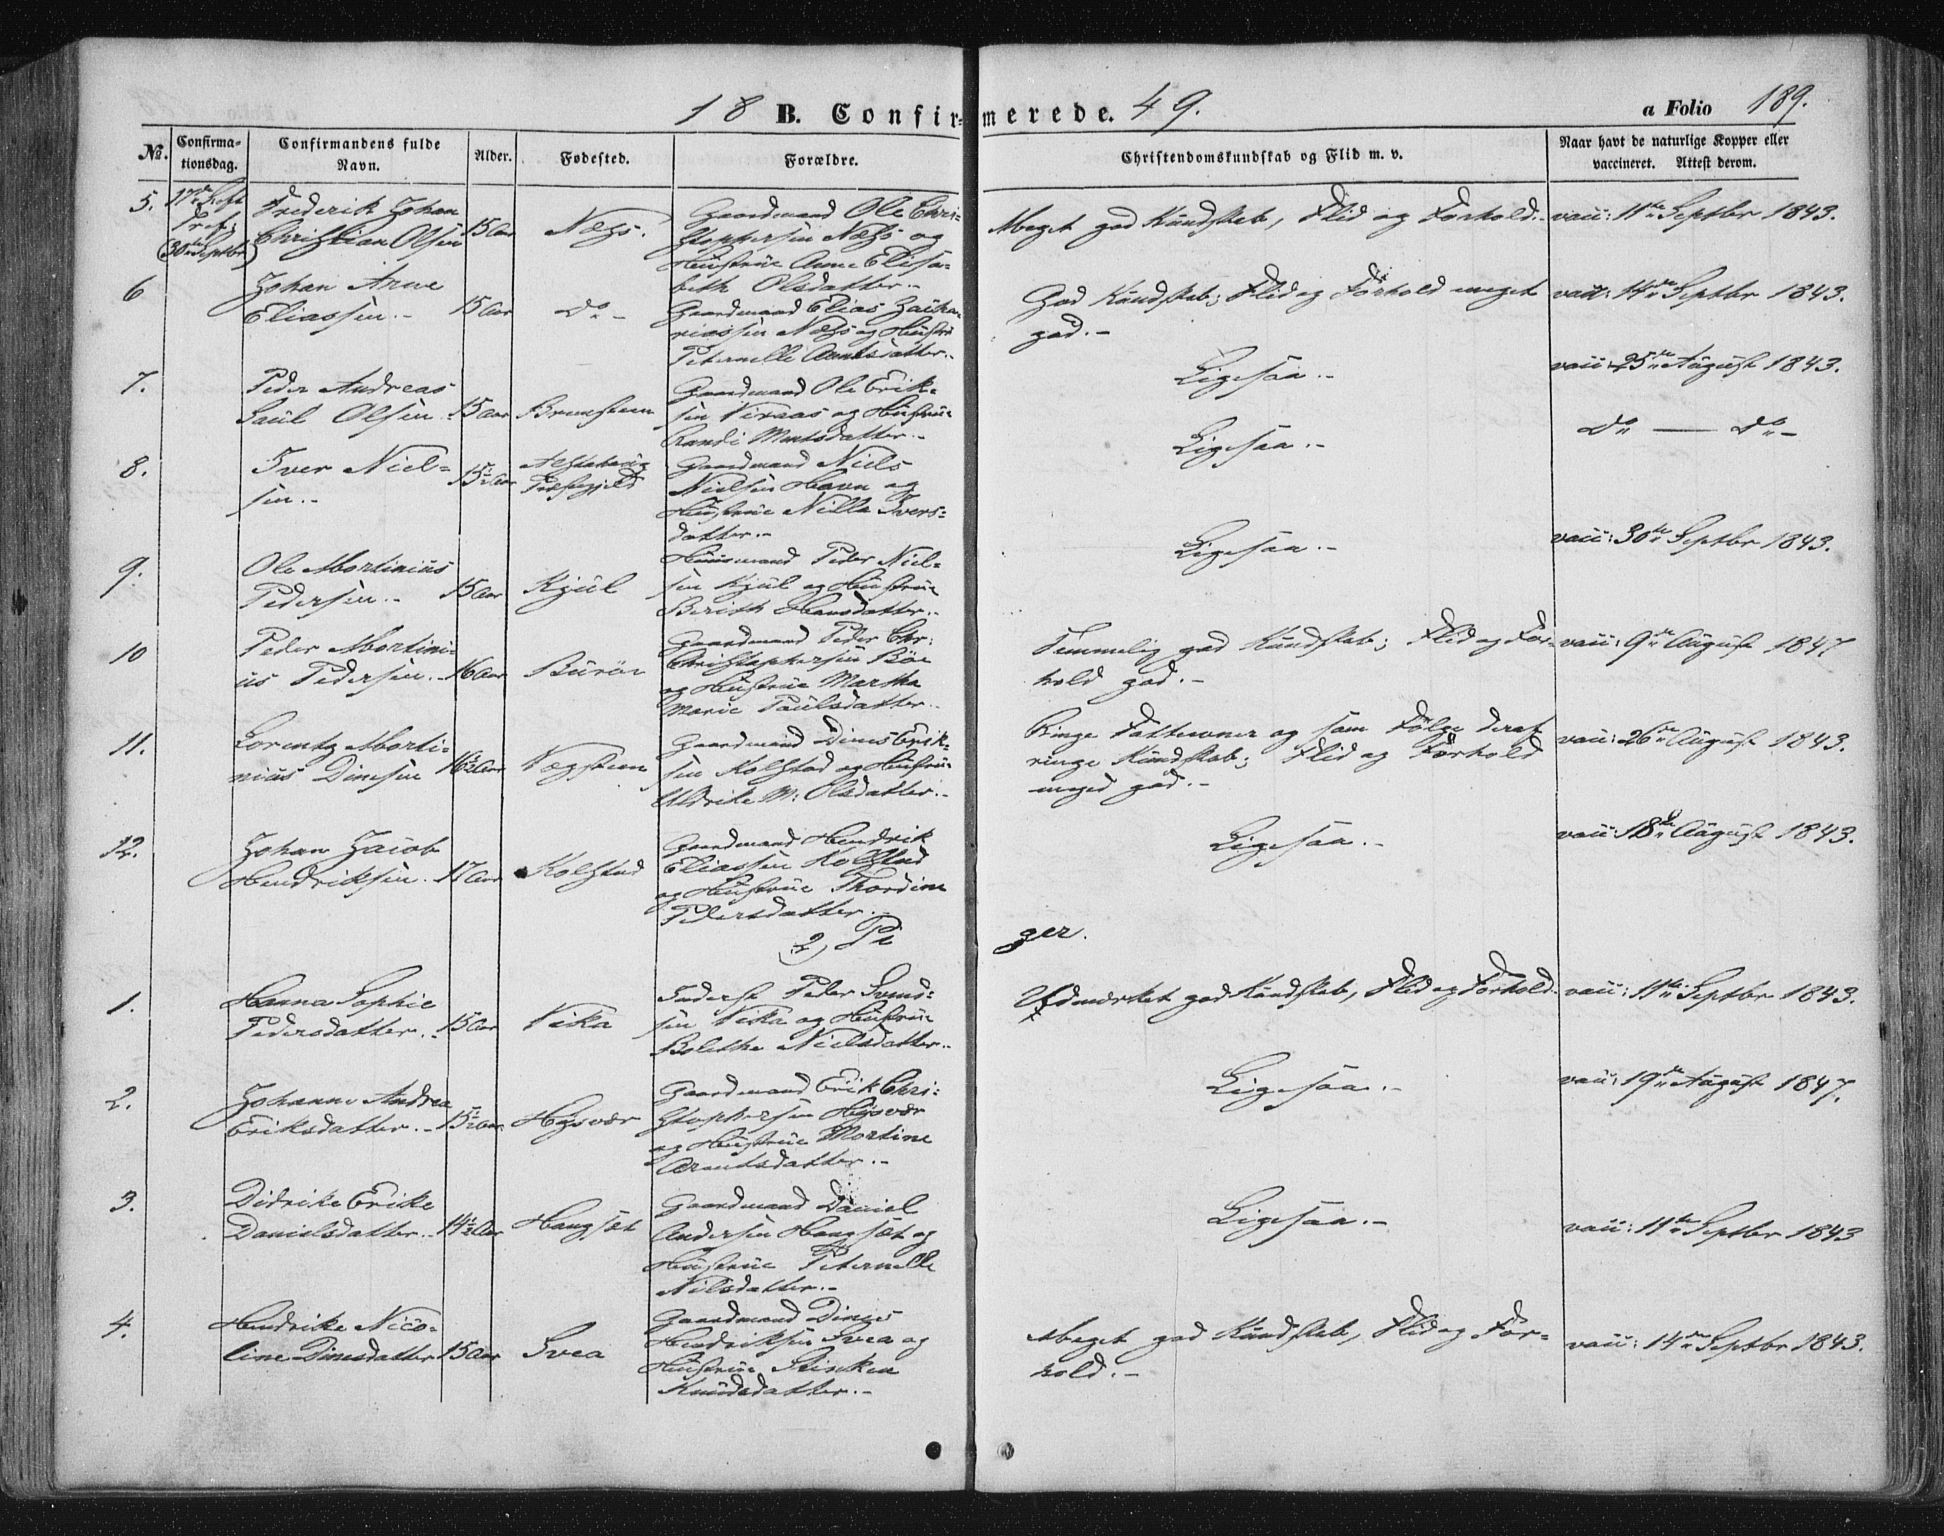 18 B. Confirmerede. 49.
a Folio 189.
No. Confirmationsdag. Confirmandens fulde Navn. Alder. Fødested. Forældre. Christendomskundskab og Flid m. v. Naar havt de naturlige Kopper eller vaccineret. Attest derom.
5. 17de Sept
(30te Septbr)
Frederik Johan
Christian Olsen
15 Aar
Næss.
Gaardmand Ole Chri-
stophersen Næss og
Hustrue Anne Elisa-
beth Olsdatter.-
Meget god Kundskab, Flid og Forhold.-
vacc: 11te Septbr 1843.
6
Johan Arne
Eliassen.-
15 Aar
do -
Gaardmand Elias Zacha-
riassen Næss og Hustru
Peternelle Arntsdatter.-
God Kundskab; Flid og Forhold meget
god.-
vacc: 14de Septbr 1843.
7.
Peder Andreas
Paul Olsen
15 Aar
Gaardmand Ole Erik-
sen og Hustrue
Randi
Ligesaa.-
vacc: 25de August 1843.
8.
Iver Niel-
sen.-
15½ Aar
Alstahoug
Præstegjeld
Gaardmand Niels
Nielsen Havn og
Hustrue Nilla Ivers-
datter.-
Ligesaa.-
do — do -
9.
Ole Mortinius
Pedersen.-
15 Aar
Kjul
Huusmand Peder Niel-
sen Kjul og Hustrue
Berith Hansdatter.-
Ligesaa.-
vacc: 30te Septbr 1843.
10
Peder Mortini-
us Pedersen.-
16 Aar
Burøe
Gaardmand Peder Chr:
Christophersen Bøe
og Hustrue Martha
Marie Paulsdatter.-
Temmelig god Kundskab; Flid og For-
hold god.-
vacc: 9de August 1847.
11.
Lorentz Morti-
nius Dinesen
16½ Aar
Vegsteen
Gaardmand Dines Erik-
sen Kolstad og Hustrue
Uldrike M: Olsdatter.-
Ringe Fatteevner og som Følge deraf
ringe Kundskab; Flid og Forhold
meged god.-
vacc: 26de August 1843.
12.
Johan Jacob
Hendriksen.
17 Aar
Kolstad
Gaardmand Hendrik
Eliassen Kolstad
og Hustrue Thordine
Pedersdatter.-
Ligesaa.-
vacc: 18de August 1843.
2, Piger.
1.
Hanna Sophie
Pedersdatter.-
15 Aar
Vika
Inderst Peder Svend-
sen Vika og Hustrue
Bolethe Nielsdatter.-
Udmærket god Kundskab, Flid og Forhold.
vacc: 11te Septbr 1843.
2.
Johanne Andrea
Eriksdatter.-
15½ Aar
Høysvær
Gaardmand Erik Chri-
stophersen Høysvær
og Hustrue Mortine
Arentsdatter.-
Ligesaa.-
vacc: 19de August 1847.
3.
Didrike Erike
Danielsdatter.-
14½ Aar
Haugsæt
Gaardmand Daniel
Andersen Haugsæt og
Hustrue Peternelle
Nilsdatter.-
Ligesaa.-
vacc: 11te Septbr 1843
4.
Hendrike Nico-
line Dinesdatter
15 Aar
Svea
Gaardmand Dines
Hendriksen Svea og
Hustrue
Knudsdatter.-
Meget god Kundskab, Flid og For-
hold.-
vacc: 14de Septbr 1843.